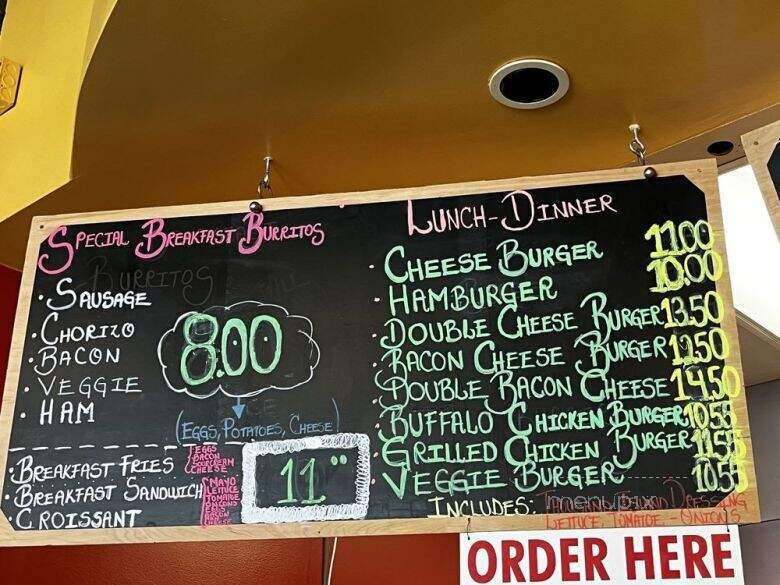 SPECIAL BREAKFAST BURRITOS
BURRITOS
• SAUSAGE
• CHORIZO
• BACON
• VEGGIE
• HAM
8.00
(EGGS, POTATOES, CHEESE)
• BREAKFAST FRIES
EGGS
BACON
SOURCREAM
CHEESE
• BREAKFAST SANDWICH
CROISSANT
MAYO
LETTUCE
TOMATOE
BACON
CHEESE
11"
LUNCH-DINNER
• CHEESE BURGER 11.00
• HAMBURGER 10.00
DOUBLE CHEESE BURGER 13.50
• BACON CHEESE BURGER 12.50
• DOUBLE BACON CHEESE 14.50
• BUFFALO CHICKEN BURGER 10.55
• GRILLED CHICKEN BURGER 11.55
• VEGGIE BURGER 10.55
INCLUDES: DRESSING
LETTUCE, TOMATOE - ONIONS
ORDER HERE